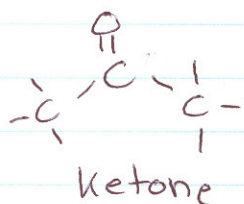 O
C
C C
Ketone